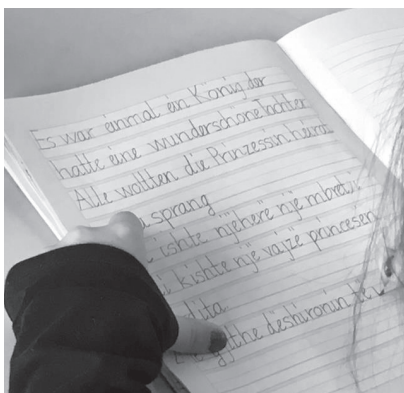 Es war einmal ein König der
hatte eine wunderschöne Tochter
Alle wollten die Prinzessin
sprang
ishte njëherë një mbreti
kishte një vajzë princesën
dita
dëshironin